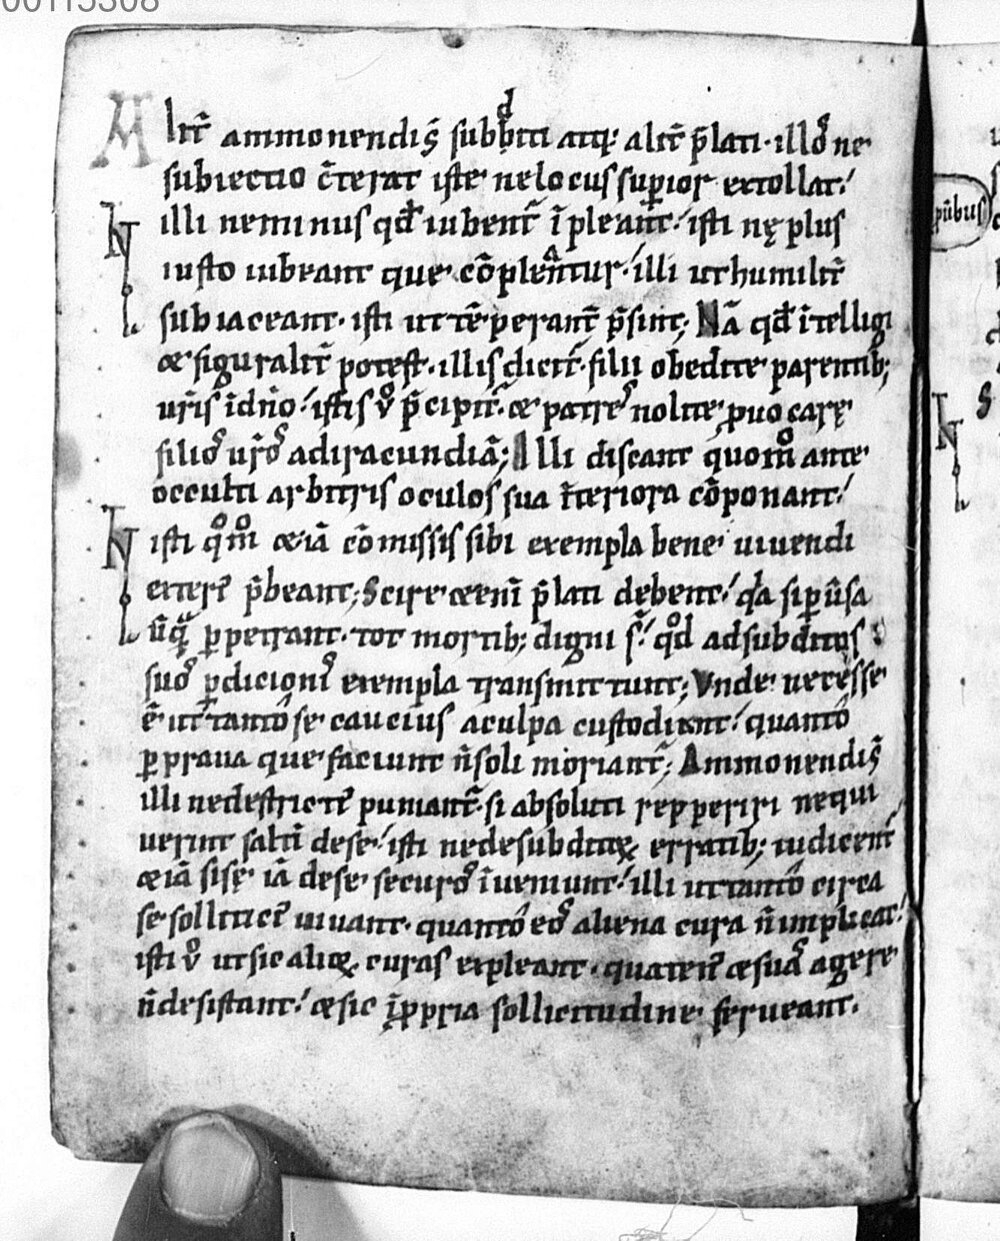 00115308
Alit̄ ammonendis̄ subd̍iti atq; alit̄ p̄lati· illos ne
subiectio c̄terat iste ne locus superior extollat·/
N illi ne minus qd̄ iubent̄ īpleant·/ isti nę plus
iusto iubeant que cōplentur·/ illi ut humilit̄
subiaceant· isti ut tēperant̄ p̄sint; Nā qd̄ ītelligi
& figuralit̄ potest· illis dicit̄· filii obedite parentib;
ur̄is īdn̄o·/ istis v̊ p̄cipit̄· & patres nolite ꝓuocarę
filios ur̄os adiracundiā; Illi discant quom̊ ante
occulti arbitris oculos sua īteriora cōponant·/
N isti qm̊ &iā cōmissis sibi exempla bene uiuendi
exteri᷒ p̄beant; Scire &eni̅ p̄lati debent·/ qa si ꝑuersa
ūq̄ ꝑpetrant· tot mortib; digni s̄·/ qd̊ adsubditos
suos ꝑdicionis exempla transmittunt; Vnde necesse
ē ut tanto se caucius aculpa custodiant·/ quanto
ꝑ praua que faciunt n̄ soli moriant̄; Ammonendis̄
illi ne destricte puniant̄· si absoluti repperiri nequi
uerint saltī dese·/ isti ne desubditoꝝ erratib; iudicent̄
&iā sisę iā dese securos īueniunt·/ illi ut tanto circa
se solliciti᷒ uiuant· quanto eos aliena cura n̄ implicat·/
isti v̊ ut sic alioꝝ curas expleant· quateni᷒ & sua agere
n̄ desistant·/ & sic ī ꝓpria sollicitudine ferueant·
pūbus
N